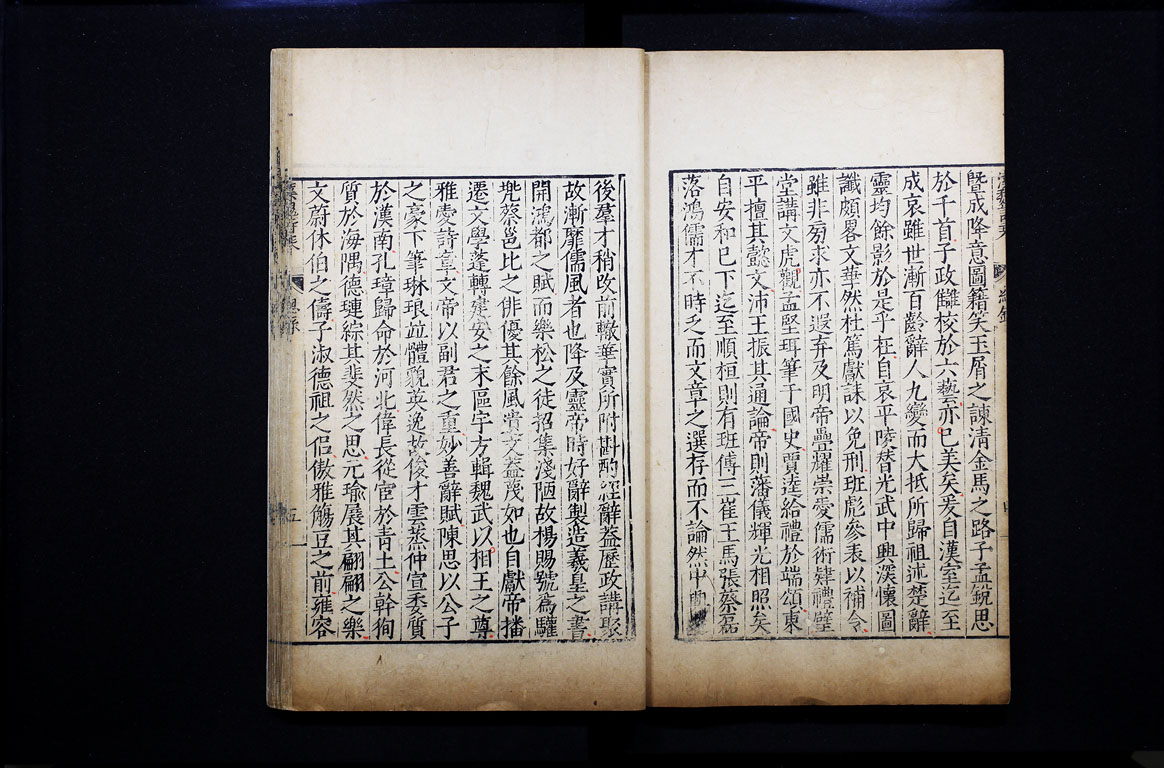 暨成降意圖籍笑玉屑之諫清金馬之路子孟銳思
於千首子政讎校於六藝亦已美矣爰自漢室迄至
成哀雖世漸百齡辭人九變而大抵所歸祖述楚辭
靈均餘影於是乎在自哀平陵替光武中興深懷圖
讖頗畧文華然杜篤獻誄以免刑班彪參表以補令
雖非旁求亦不遐弃及明帝疊耀崇愛儒術肄禮璧
堂講文虎觀孟堅珥筆于國史賈逵給禮於端頌東
平擅其懿文沛王振其通論帝則藩儀輝光相照矣
自安和已下迄至順桓則有班傅三崔王馬張蔡磊
落鴻儒才不時乏而文章之選存而不論然中興
後羣才稍改前轍華實所附斟酌經辭蓋歷政講聚
故漸靡儒風者也降及靈帝時好辭製造羲皇之書
開鴻都之賦而樂松之徒招集淺陋故楊賜號為驩
兠蔡邕比之俳優其餘風貴文蓋蔑如也自獻帝播
遷文學蓬轉建安之末區宇方輯魏武以相王之尊
雅愛詩章文帝以副君之重妙善辭賦陳思以公子
之豪下筆琳琅竝體貌英逸故俊才雲蒸仲宣委質
於漢南孔璋歸命於河北偉長從宦於青土公幹徇
質於海隅德璉綜其斐然之思元瑜展其翩翩之樂
文蔚休伯之儔子淑德祖之侶傲雅觴豆之前雍容
五